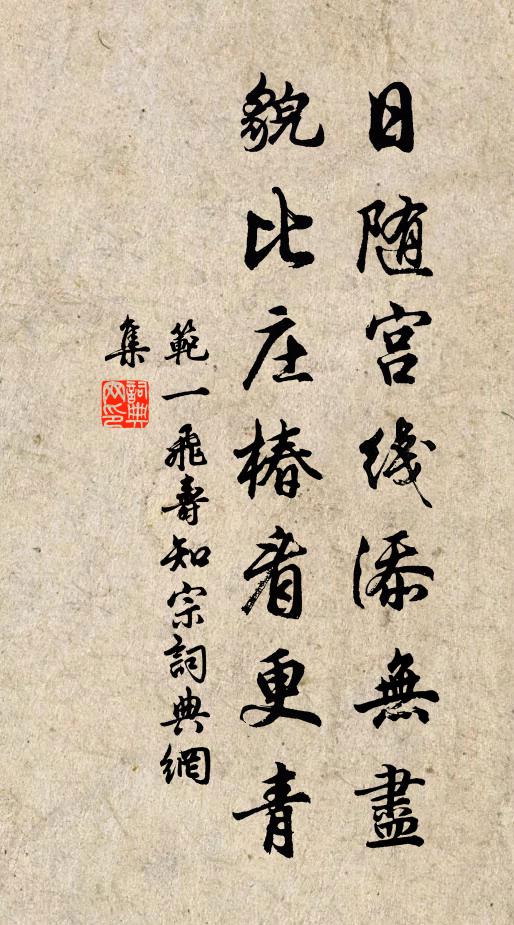 日随宫线添無盡
貌比庄椿看更青
範一飛壽知宗詞典網
集
詞典网印